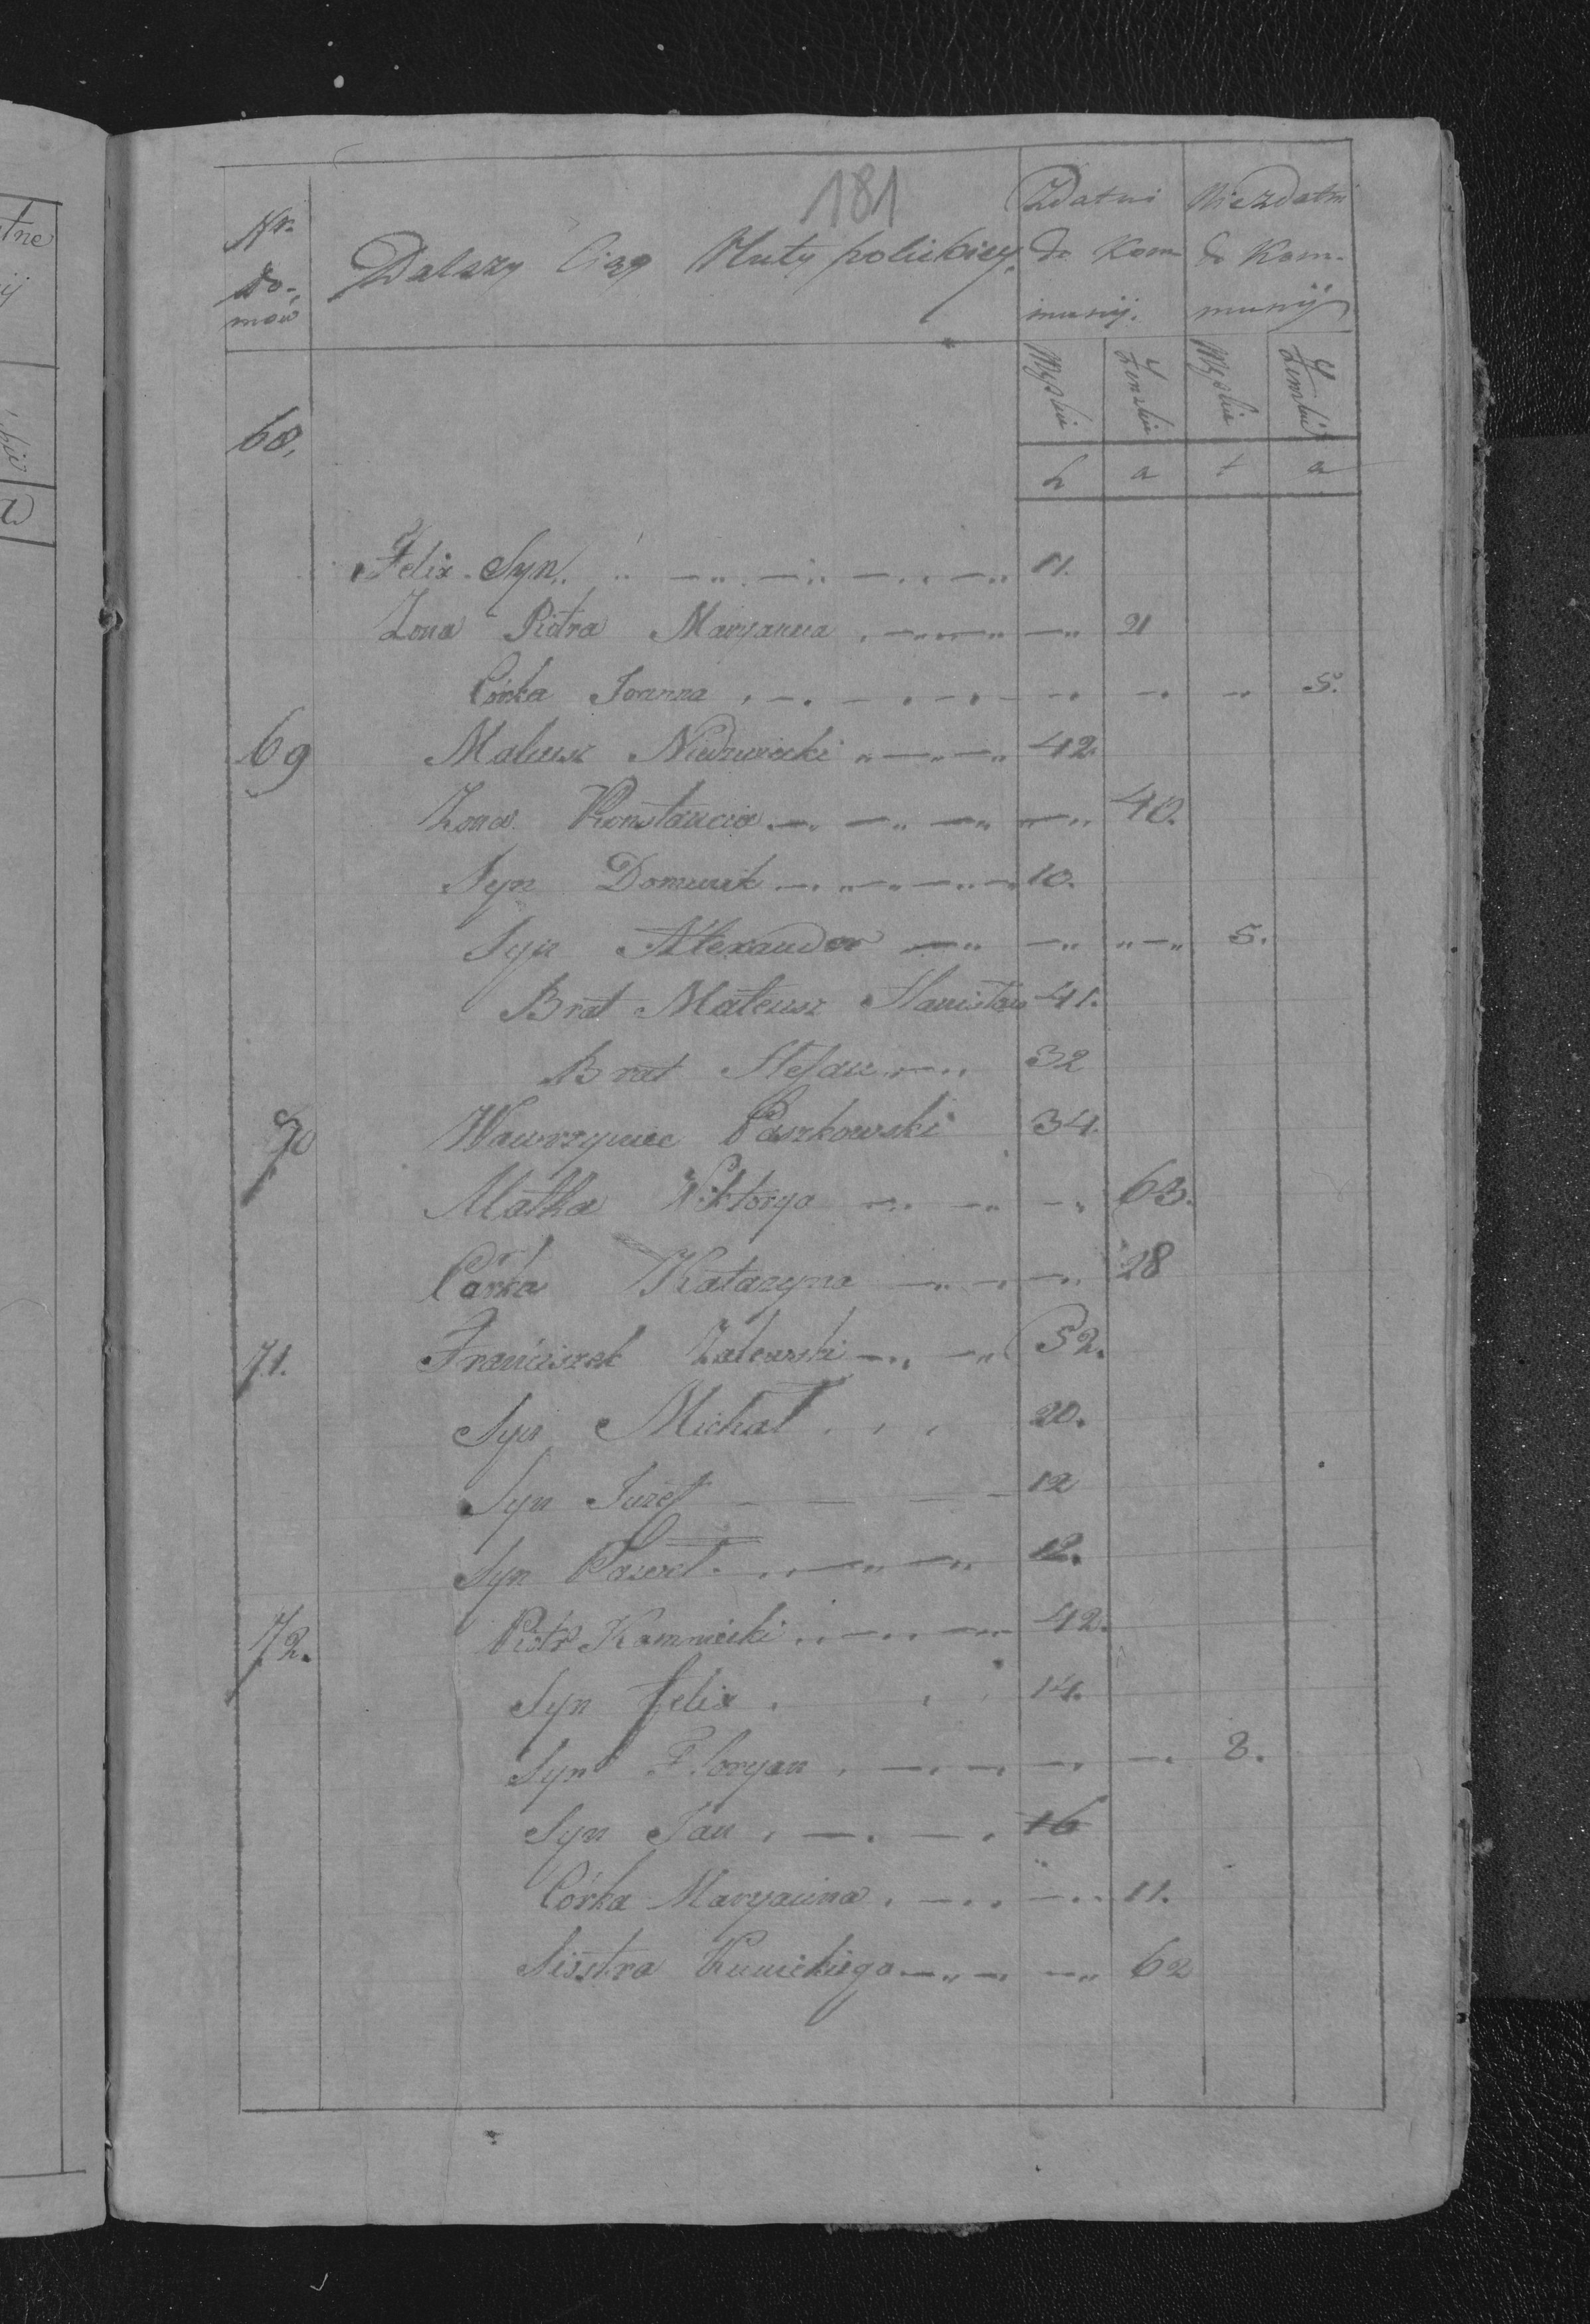 181
Nr. do-mow
Dalszy Ciąg Huty
Zdatni do Kommunij.
Niezdatni do Kommunij
Męskie Żenskie Męskie Żenskie
a a
68.
Felix Syn 11.
Zona Piotra Maryanna 21
Córka Joanna 5.
69 Mateusz Niedzwiecki 42.
Zona Konstancia 40.
Syn Dominik 10.
Syn Alexander 5.
Brat Mateusz Stanisław 41.
Brat Stefan 32
70 Wawrzyniec Paszkowski 34.
Matka Wiktorya 63.
Carka Katarzyna 28
71. Franciszek Zalewski 52.
Syn Michał 20.
Syn Juzef 12
Syn Paweł 12.
72. Piotr 42.
Syn Felix 14.
Syn Floryan 8.
Syn Jan 16
Córka Maryanna 11.
Siostra 62